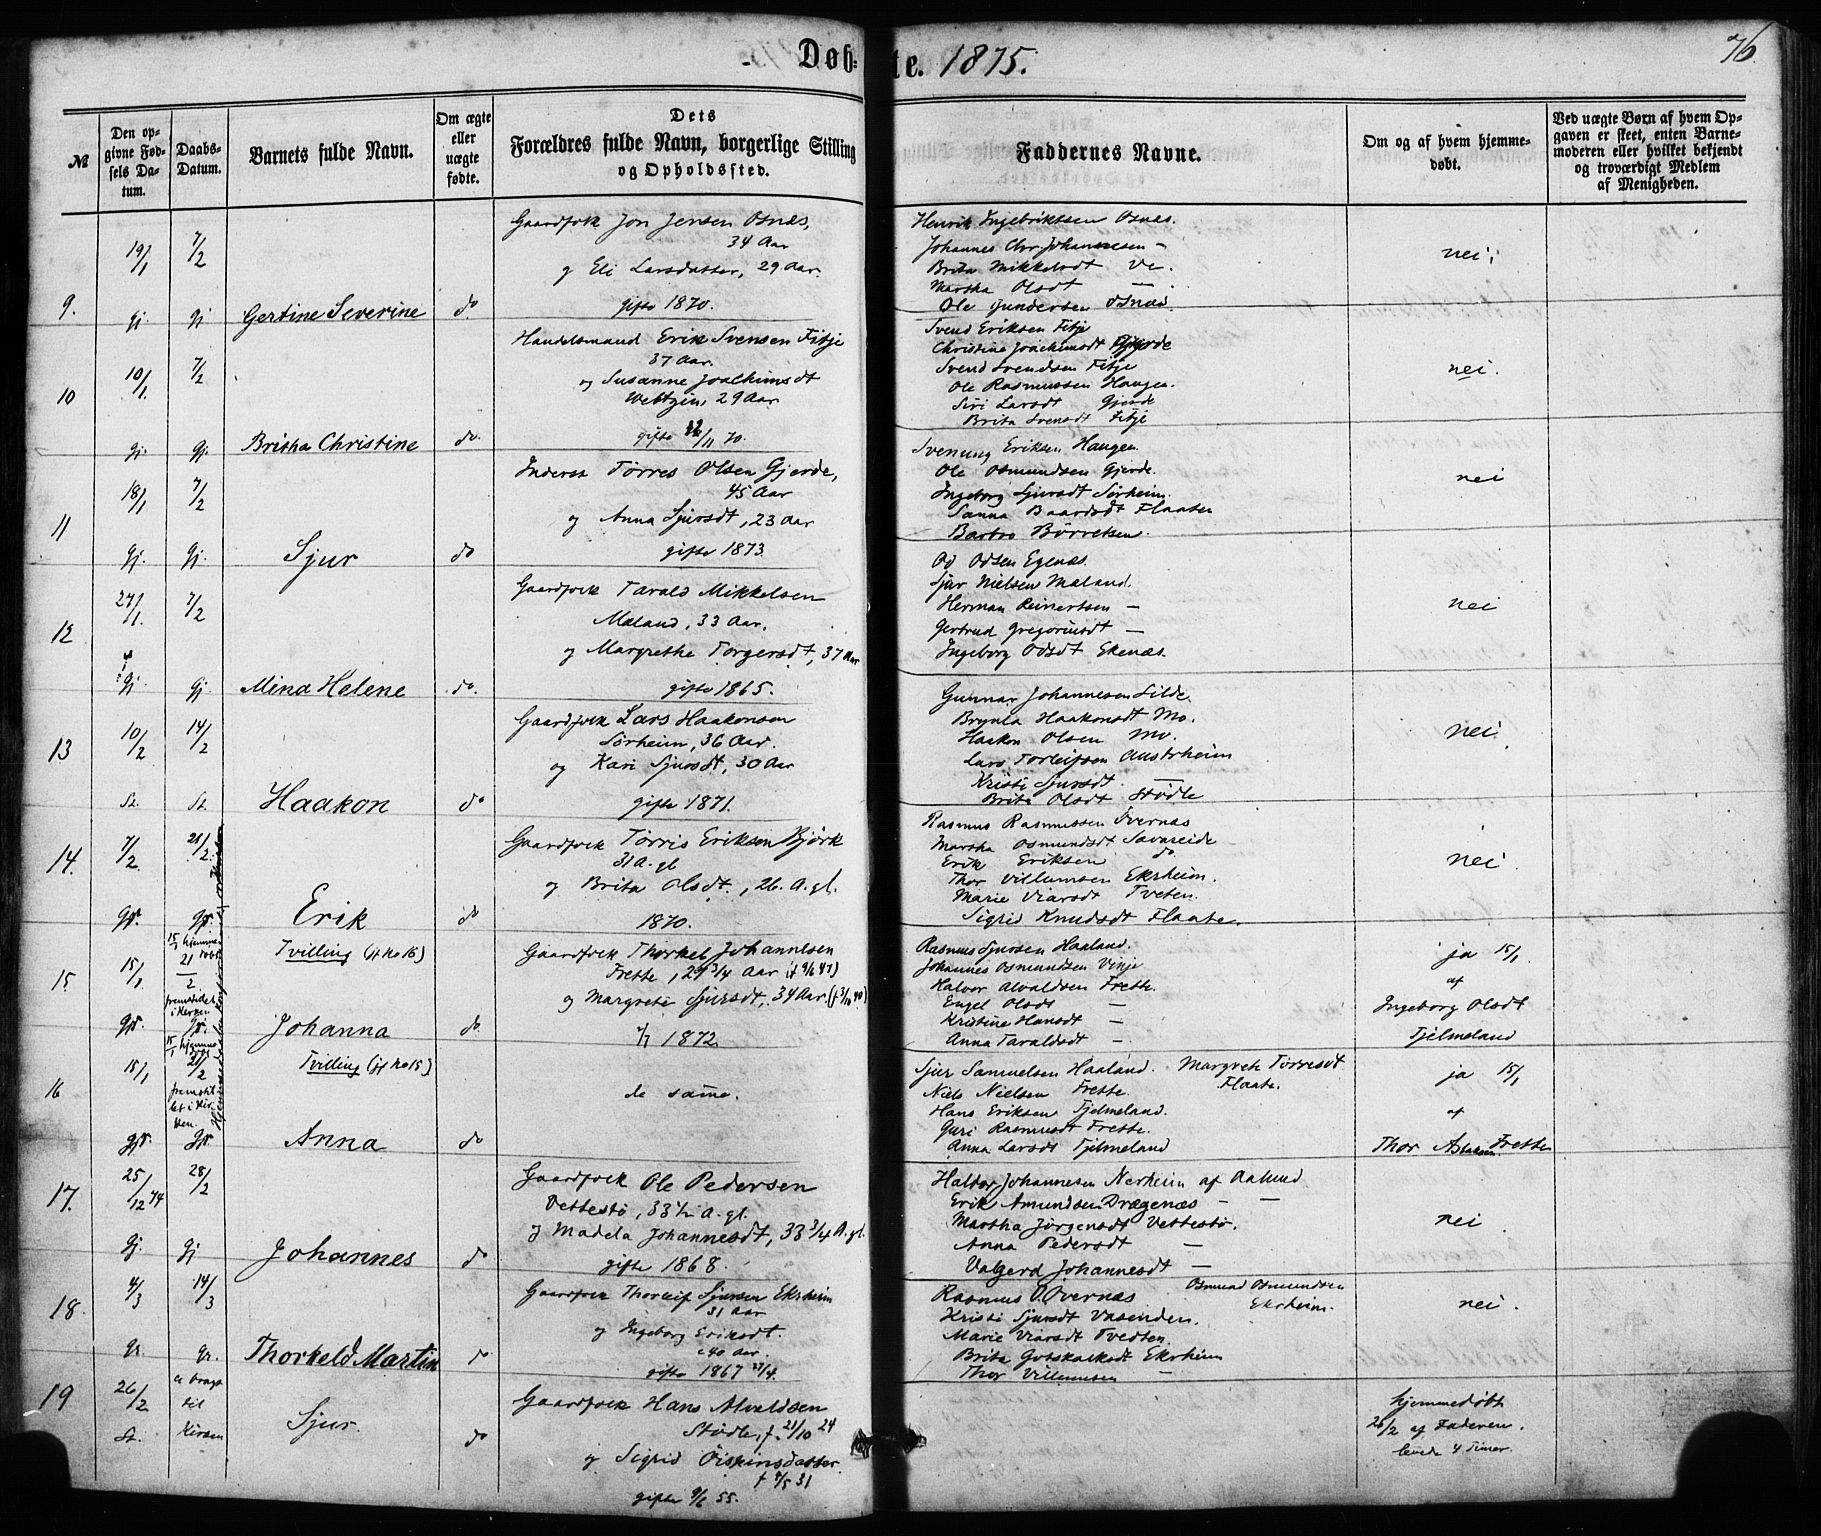 Døb-te. 1875.
76
№
Den opgivne Fødsels Datum.
Daabs-Datum.
Barnets fulde Navn.
Om ægte eller uægte fødte.
Dets Forældres fulde Navn, borgerlige Stilling og Opholdssted.
Faddernes Navne.
Om og af hvem hjemmedøbt.
Ved uægte Børn af hvem Opgaven er skeet, enten Barnemoderen eller hvilket bekjendt og troværdigt Medlem af Menigheden.
9.
19/1
7/2
Gj.
Gj
Gertine Severine
do.
Gaardfolk Jon Jensen Osnæs,
34 Aar
og Eli Larsdatter, 29 Aar.
gifte 1870.
Henrik Ingebriktsen Osnæs.
Johannes Chr. Johannesen —
Brita Mikkelsdt Ve.
Martha Olsdt —
Ole Gundersen Osnæs.
nei
10
10/1
7/2
Gj.
Gj.
Britha Christine
do.
Handelsmand Erik Svensen Fitje
37 Aar.
og Susanne Joachimsdt
29 Aar
gifte /11 70.
Svend Eriksen Fitje
Christine Joachimsdt Gjerde
Svend Svendsen Fitje
Ole Rasmussen Haugen.
Siri Larsdt Gjerde
Brita Svensdt Fitje
nei.
11
18/1
7/2
Gj.
Gj.
Sjur
do
Inderst Tørres Olsen Gjerde,
45 Aar
og Anna Sjursdt, 23 Aar
gifte 1873.
Svenung Eriksen Haugen
Ole Osmundsen Gjerde.
Ingeborg Sjursdt Sørheim.
Sanna Baardsdt Flaaten
Barbro Børretsen.
nei
12
27/1
7/2
Gj.
Gj.
Mina Helene
do.
Gaardfolk Tarald Mikkelsen
Mæland, 33 Aar.
og Margrethe Torgersdt, 37 Aar
gifte 1865.
Od Odsen Egenæs.
Sjur Nielsen Mæland.
Herman Reinertsen —
Gertrud Gregoriusdt —
Ingeborg Odsdt Ekenæs.
nei
13
10/2
14/2
St.
St.
Haakon
do
Gaardfolk Lars Haakonsen
Sørheim, 36 Aar.
og Kari Sjursdt, 30 Aar
gifte 1871.
Gunnar Johannesen Silde.
Brynla Haakonsdt Mo.
Haakon Olsen Mo.
Lars Torleifsen Austrheim
Kristi Sjursdt —
Brita Olsdt Stødle
nei
14.
7/2
21/2.
Erik
do
Gaardfolk Tørris Eriksen Bjørk
31 A. gl
og Brita Olsdt., 26. A. gl.
1870.
Rasmus Rasmussen Øvernæs
Martha Osmundsdt Savareide
Erik Eriksen do.
Thor Villumsen Ekrheim.
Marie Viarsdt Tveten.
Sigrid Knudsdt Flaate.
nei.
15.
15/1
15/1 hjemmedøbt
21/2
fremstillet
i Kirken
Tvilling (jf No 16)
Johanna
do.
Gaardfolk Thorkel Johannesen
Frette, 27 3/4 Aar (f 9/6 47)
og Margrete Sjursdt, 34 Aar. (f 3/10 40)
7/7 1872.
Rasmus Sjursen Haaland.
Johannes Osmundsen Vinje
Halvor Alvaldsen Frette.
Engel Olsdt —
Kristine Hansdt —
Anna Taraldsdt —
ja 15/1
af
Ingeborg Olsdt
Fjelmeland
16
15/1
15/1 hjemmedøbt
21/2
fremstillet
i Kirken.
Tvilling (jf No 15)
Anna
do
de samme.
Sjur Samuelsen Haaland. Margrete Tørresdt
Niels Nielsen Frette. Flaate.
Hans Eriksen Fjelmeland.
Guri Rasmusdt Frette.
Anna Larsdt Fjelmeland
ja 15/1
af
Thor Frette
17.
25/12 74
28/2
Gj.
Gj
Johannes
do
Gaardfolk Ole Pedersen
Vettestø, 33 1/2 A. gl.
og Madela Johannesdt, 33 3/4 A. gl.
gifte 1868.
Haldor Johannesen Nerheim af Aalund
Erik Amundsen Drægenæs — —
Martha Jørgensdt Vettestø.
Anna Pedersdt —
Valgerd Johannesdt —
nei
18
4/3
14/3
Gr.
Gr.
Thorkeld Martin
do
Gaardfolk Thorleif Sjursen Ekrheim
31 Aar
og Ingeborg Eriksdt.
40 Aar.
gifte 1867 27/4.
Rasmus O. Øvernæs Osmund Osmundsen
Ekrheim.
Kristi Sjursdt Vasenden.
Marie Viarsdt Tvedten.
Brita Gotskalksdt Ekrheim
Thor Villumsen —
nei.
19
26/2
St.
ei bragt
til
Kirken
Sjur
do
Gaardfolk Hans Alvaldsen
Stødle, f. 21/10 24
og Sigrid Østeinsdatter
f 7/5 31
gifte 9/6 55.
hjemmedøbt
26/2 af Faderen.
levede 4 Timer.